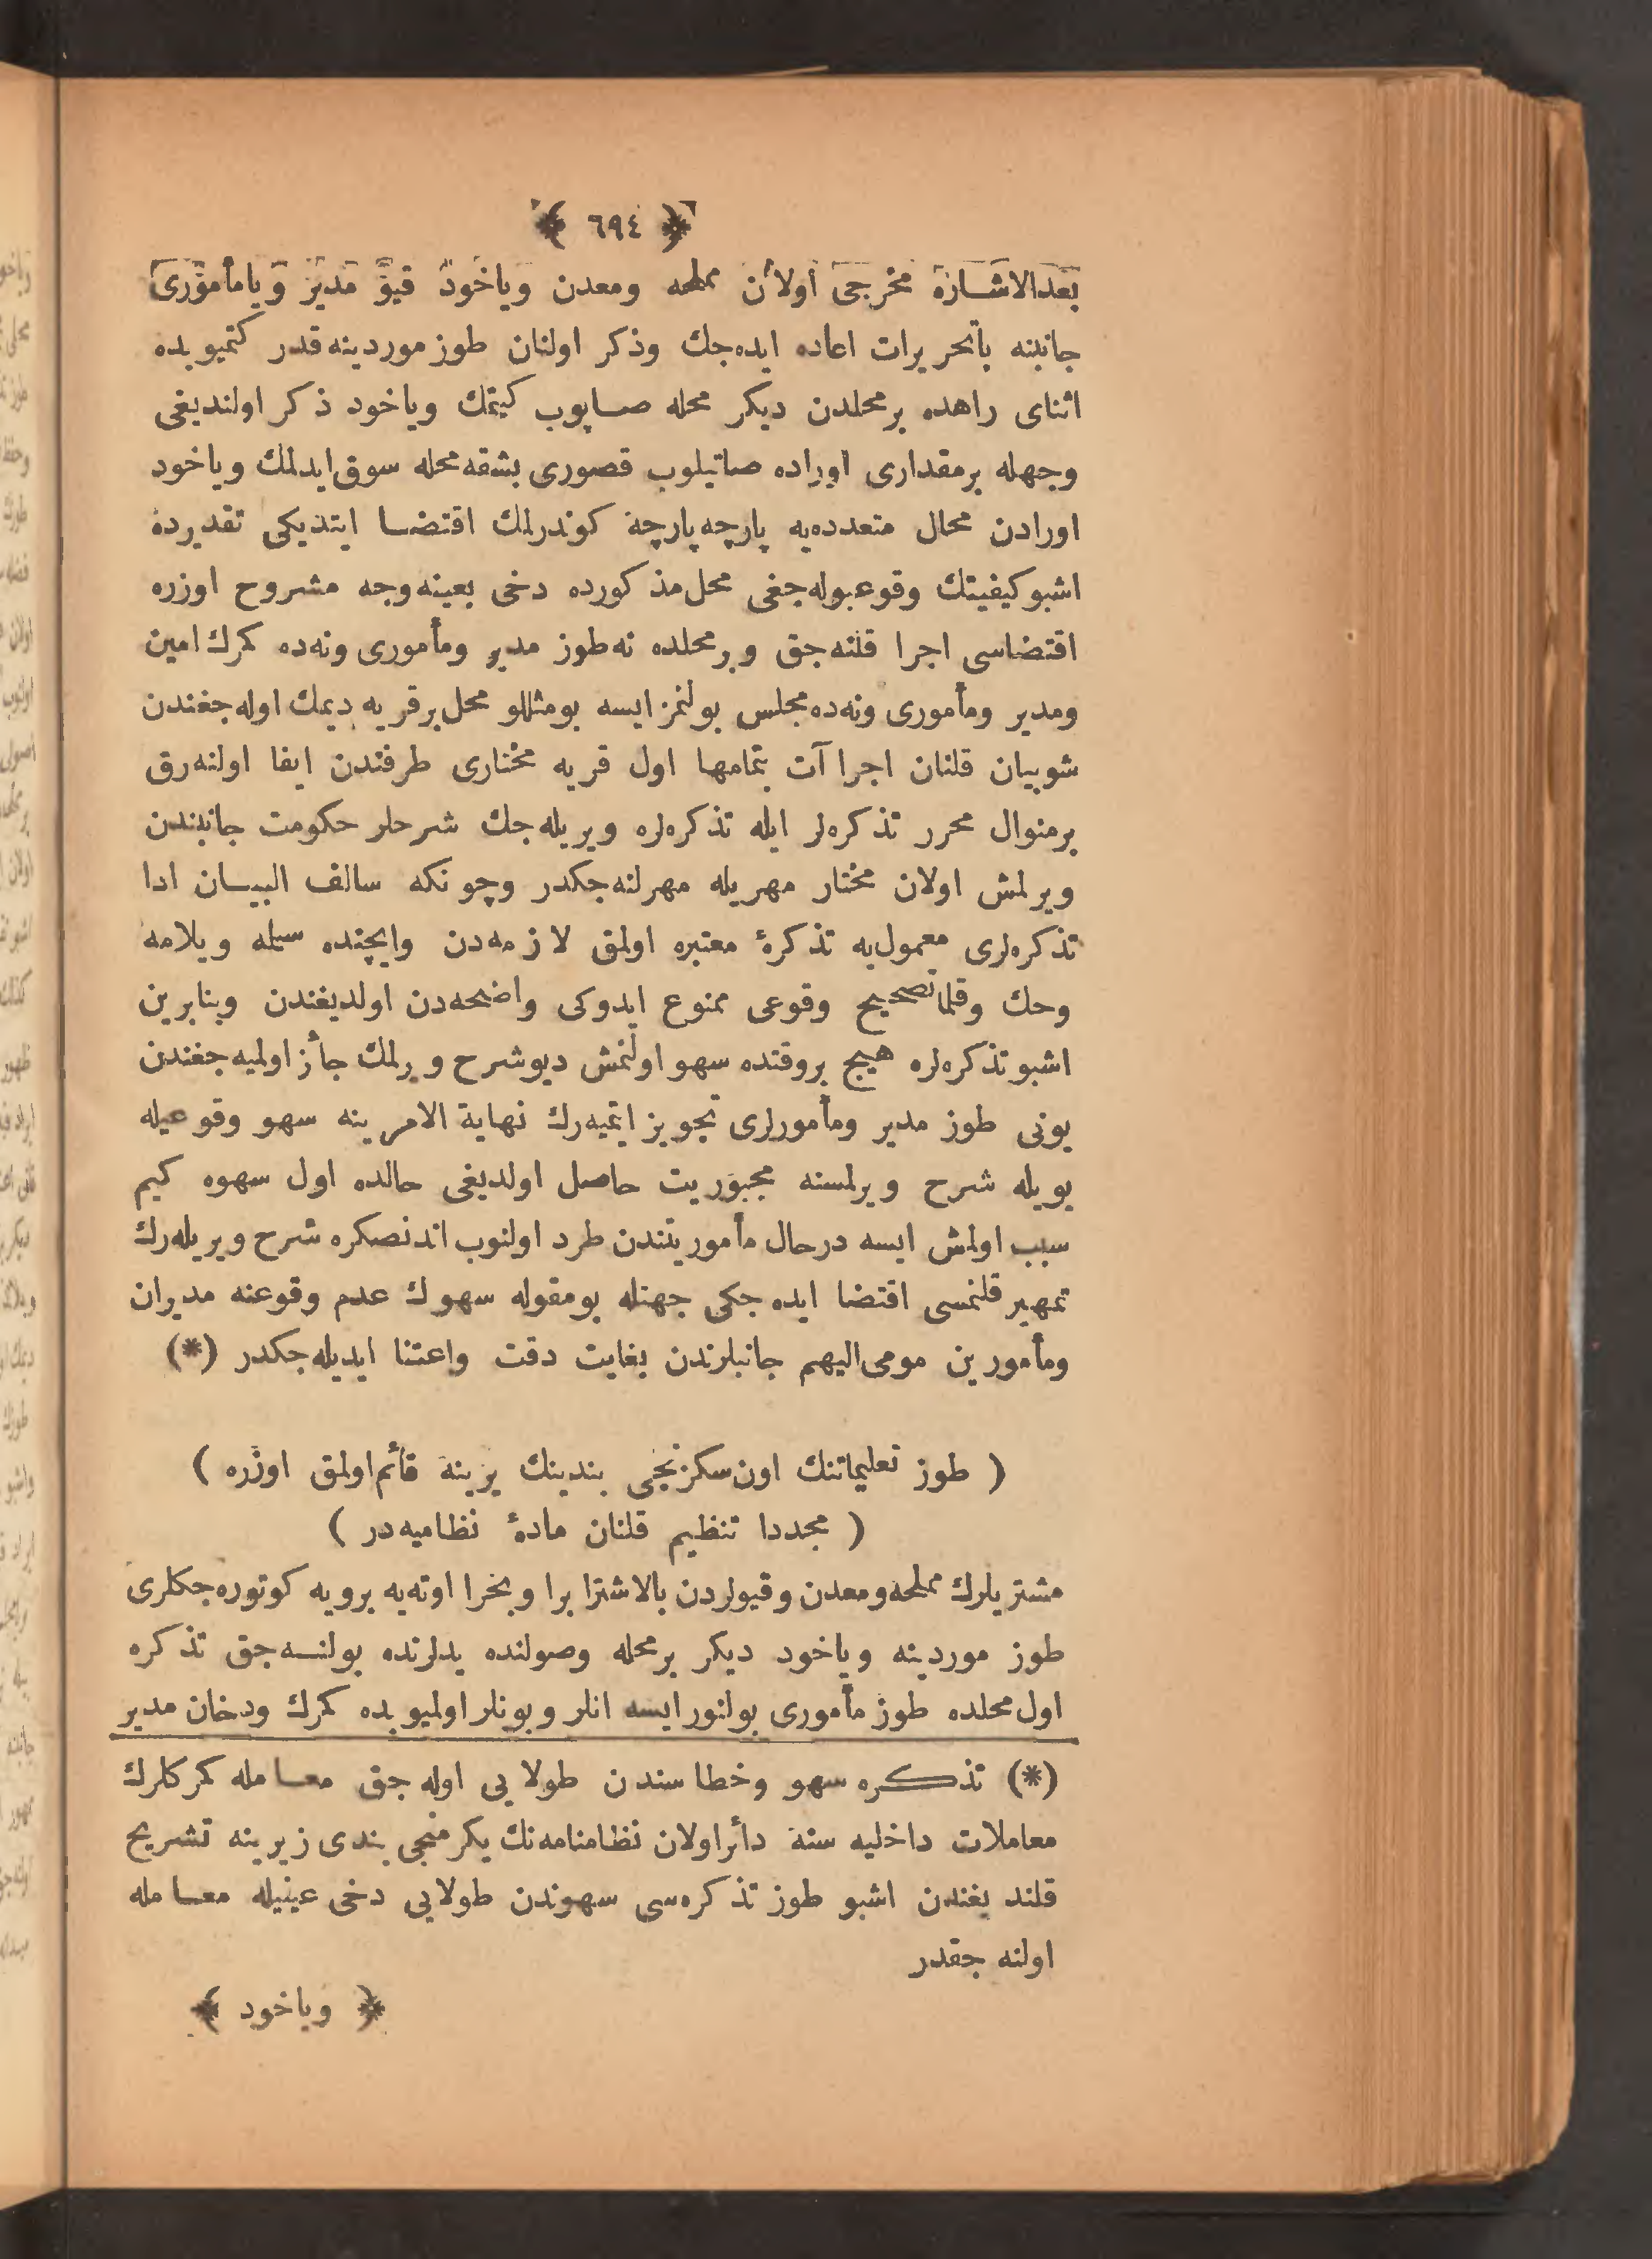 ﴿ ٦٩٤ ﴾
بعدالاشاره مخرجی اولان مملحه ومعدن ویاخود قیوی مدیر ویامأموری
جانبنه باتحریرات اعاده ایده‌جك وذکر اولنان طوز موردینه‌قدر کتمیوبده
اثنای راهده برمحلدن دیکر محله صاپوب کیتمك ویاخود ذکر اولندیغی
وجهله برمقداری اوراده صاتیلوب قصوری بشقه‌محله سوق‌ایدلمك ویاخود
اورادن محال متعدده‌یه پارچه‌پارچه کوندرلمك اقتضا ایتدیکی تقدیرده
اشبوکیفیتك وقوعبوله‌جغی محل‌مذکورده دخی بعینه‌وجه مشروح اوزره
اقتضاسی اجرا قلنه‌جق وبرمحلده نه‌طوز مدیر ومأموری ونه‌ده کمرك امین
ومدیر ومأموری ونه‌ده‌مجلس بولنمز‌ایسه بومثللو محل‌برقریه دیمك اوله‌جغندن
شوبیان قلنان اجراآت بتمامها اول قریه مختاری طرفندن ایفا اولنه‌رق
برمنوال محرر تذکره‌لر ایله تذکره‌لره ویریله‌جك شرحلر حکومت جانبندن
ویرلمش اولان مختار مهریله مهرلنه‌جکدر وچونکه سالف البیان ادا
تذکره‌لری معمول‌به تذکرۀ معتبره اولمق لازمه‌دن وایچنده سیله ویلامه
وحك وقلماتصحیح وقوعی ممنوع ایدوکی واضحه‌دن اولدیغندن وبنابرین
اشبوتذکره‌لره هیچ بروقتده سهو اولنمش دیوشرح ویرلمك جائزاولمیه‌جغندن
بونی طوز مدیر ومأمورلری تجویز ایتمیه‌رك نهایة الامرینه سهو وقوعیله
بویله شرح ویرلمسنه مجبوریت حاصل اولدیغی حالده اول سهوه کیم
سبب اولمش ایسه درحال مأموریتندن طرد اولنوب اندنصکره شرح ویریله‌رك
تمهیر قلنمسی اقتضا ایده‌جکی جهتله بومقوله سهوك عدم وقوعنه مدیران
ومأمورین مومی‌الیهم جانبلرندن بغایت دقت واعتنا ایدیله‌جکدر (*)
( طوز تعلیماتنك اون‌سکزنجی بندینك یرینه قائم‌اولمق اوزره )
( مجددا تنظیم قلنان مادۀ نظامیه‌در )
مشتریلرك مملحه‌ومعدن وقیولردن بالاشترا برا وبحرا اوته‌یه برویه کوتوره‌جکلری
طوز موردینه ویاخود دیکر برمحله وصولنده یدلرنده بولنـه‌جق تذکره
اول‌محلده طوز مأموری بولنورایسه انلر وبونلراولمیوبده کمرك ودخان مدیر
(*) تذکره سهو وخطاسندن طولایی اوله‌جق معـامله کمرکلرك
معاملات داخلیه‌سنه دائراولان نظامنامه‌نك یکرمنجی بندی زیرینه تشریح
قلندیغندن اشبو طوز تذکره‌سی سهوندن طولایی دخی عینیله معـامله
اولنه‌جقدر
﴿ ویاخود ﴾